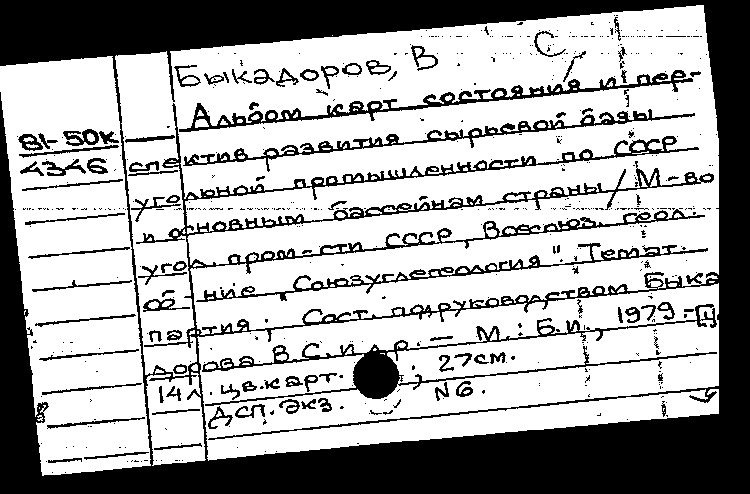 Быкадоров, В С.
Альбом карт состояния и пер-
81-50к
4346
спектив развития сырьевой базы
угольной промышленности по СССР
и основным бассейнам страны / М-во
угол. пром-сти СССР, Всесоюз. геол.
об-ние "Союзуглегеология". Темат.
партия; Сост. под руководством Быка
дорова В.С. и др. — М.: Б.и., 1979.-[1],
14 л. цв. карт. ; 27см.
ДСП. Экз. N6.